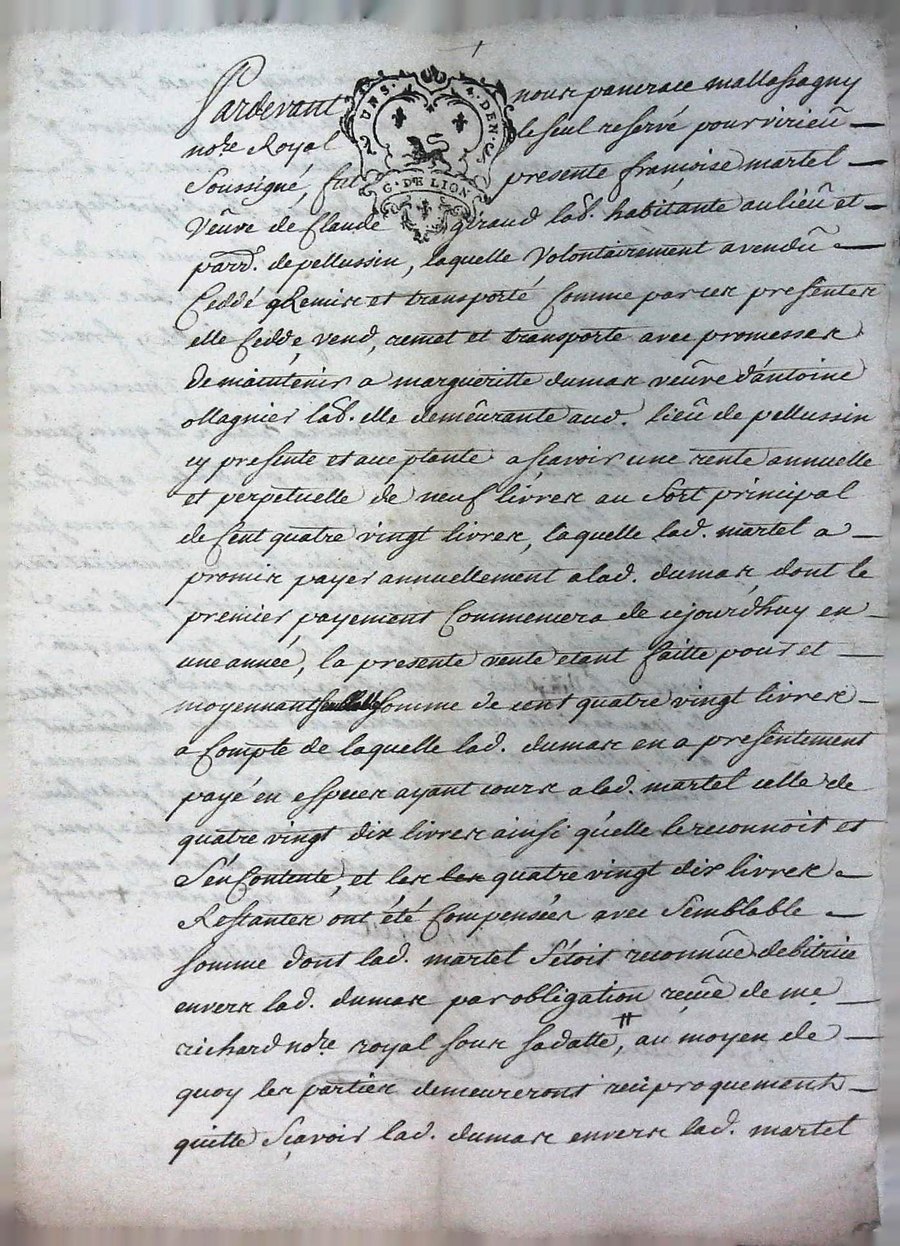 Pardevant nous pancrace mallassagny
UN S. 4. DEN.
G. DE LION
no.re Royal le seul reservé pour virieu
Soussigné, fut presente françoise martel
Veuve de Claude giraud lab. habitante au lieu et
parr. de pellussin, laquelle Volontairement a vendu
Ceddé Remis et transporté Comme par ces presentes
elle Cedde, vend, remet et transporte avec promesses
de maintenir a margueritte dumas veuve d'antoine
ollagnier lab. elle demeurante aud. lieu de pellussin
cy presente et acceptante ascavoir une rente annuelle
et perpetuelle de neuf livres au Sort principal
de Cent quatre vingt livres, laquelle lad. martel a
promis payer annuellement a lad. dumas dont le
premier payement Commencera de cejourdhuy en
une année, la presente vente etant faitte pour et
moyennant somme de cent quatre vingt livres
a Compte de laquelle lad. dumas en a presentement
payé en especes ayant cours a lad. martel celle de
quatre vingt dix livres ainsi qu'elle le reconnoit et
S'en Contente, et les quatre vingt dix livres
Restantes ont été Compensées avec Semblable
somme dont lad. martel S'etoit reconnüe debitrice
envers lad. dumas par obligation reçüe de me
richard no.re royal sous sa datte, au moyen de
quoy les parties demeureront reciproquement
quitte Sçavoir lad. dumas envers lad. martel